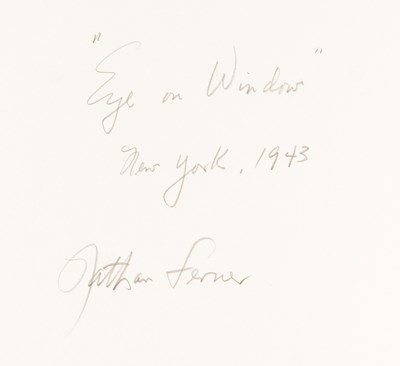 "Eye on Window"
New York, 1943
Nathan Lerner